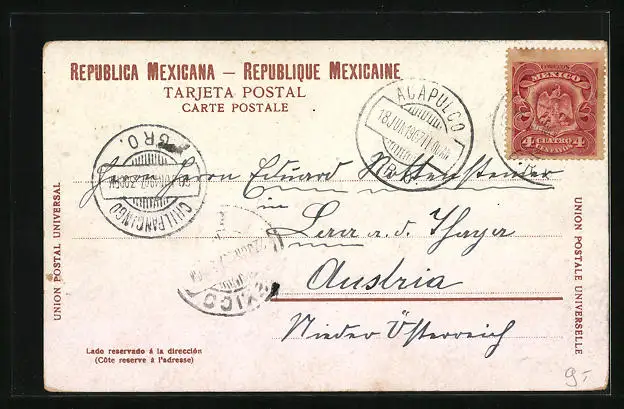 REPUBLICA MEXICANA — REPUBLIQUE MEXICAINE
TARJETA POSTAL
CARTE POSTALE
CORREOS
MEXICO
4 CUATRO 4
CENTAVOS
ACAPULCO
18 JUN 1907
GRO.
GRO.
CHILPANCINGO
MEXICO
Herrn Herrn Eduard
in
a. d. Thaya
Austria
Nieder Österreich
UNION POSTAL UNIVERSAL
UNION POSTALE UNIVERSELLE
Lado reservado á la dirección
(Côte reserve à l'adresse)
9.-